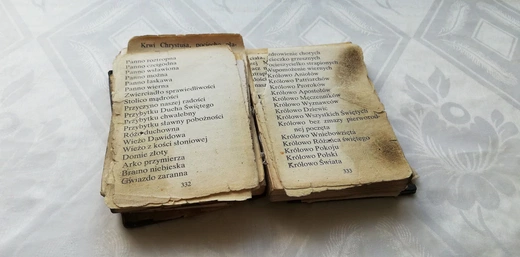 Krwi Chrystusa,
Panno roztropna
Panno czcigodna
Panno wsławiona
Panno można
Panno łaskawa
Panno wierna
Zwierciadło sprawiedliwości
Stolico mądrości
Przyczyno naszej radości
Przybytku Ducha Świętego
Przybytku chwalebny
Przybytku sławny pobożności
Różo duchowna
Wieżo Dawidowa
Wieżo z kości słoniowej
Domie złoty
Arko przymierza
Bramo niebieska
Gwiazdo zaranna
332
Uzdrowienie chorych
Ucieczko grzesznych
Pocieszycielko strapionych
Wspomożenie wiernych
Królowo Aniołów
Królowo Patriarchów
Królowo Proroków
Królowo Apostołów
Królowo Męczenników
Królowo Wyznawców
Królowo Dziewic
Królowo Wszystkich Świętych
Królowo bez zmazy pierworod-
nej poczęta
Królowo Wniebowzięta
Królowo Różańca świętego
Królowo Pokoju
Królowo Polski
Królowo Świata
333